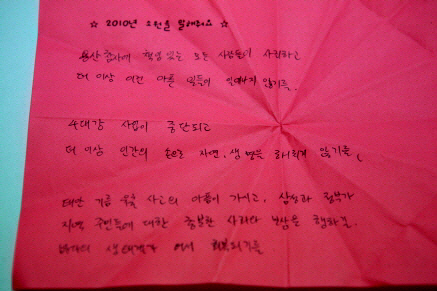 ☆ 2010년 소원을 말해봐요 ☆
용산참사에 책임 있는 모든 사람들이 사죄하고
더 이상 이런 아픈 일들이 일어나지 않기를.
4대강 사업이 중단되고
더 이상 인간의 손으로 자연, 생명을 해치지 않기를.
태안 기름 유출 사고의 아픔이 가시고, 삼성과 정부가
지역 주민들에 대한 충분한 사죄와 보상을 행하길.
바다의 생태계가 어서 회복되기를